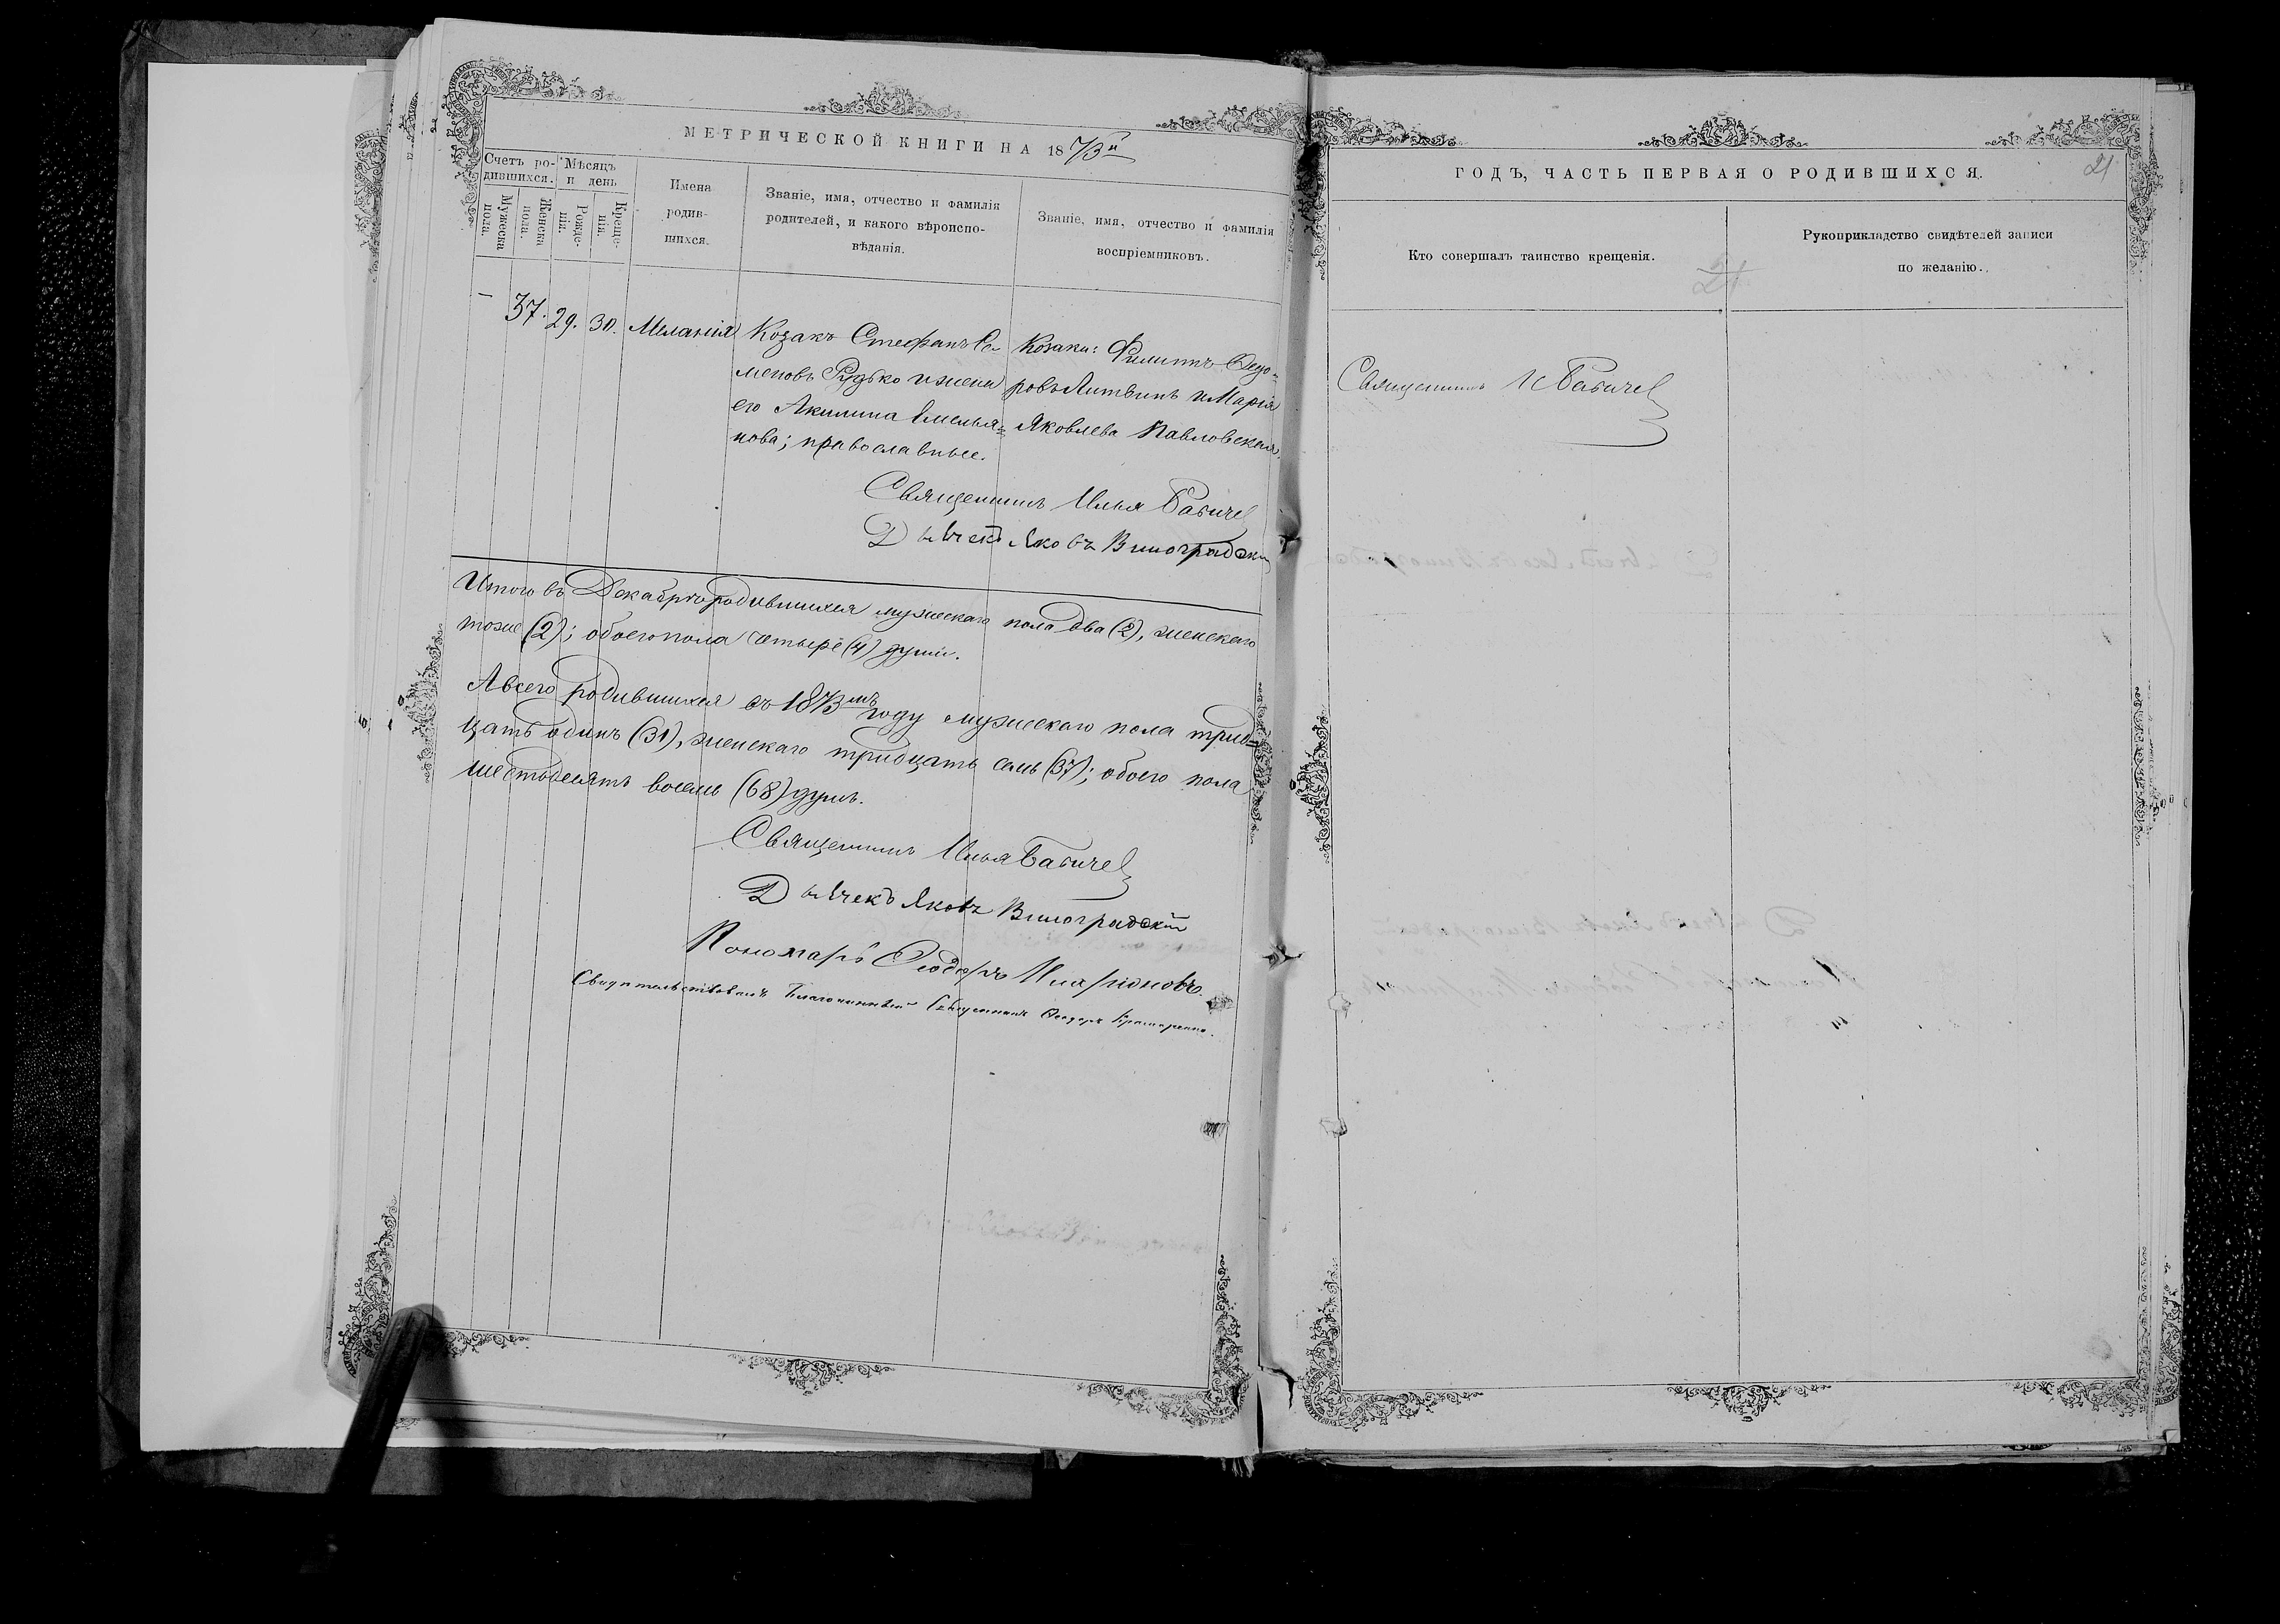 МЕТРИЧЕСКОЙ КНИГИ НА 1873й
Счетъ родившихся.
Мужеска пола.
Женска пола.
Мѣсяцъ и день
Рожденія.
Крещенія
Имена
родив-
шихся.
Званіе, имя, отчество и фамилія
родителей, и какого вѣроиспо-
вѣданія.
Званіе, имя, отчество и фамилія
воспріемниковъ.
– 37. 29. 30. Меланія
Козакъ Стефанъ Се-
меновъ Рудько и жена
его Акилина Емелья=
нова; православные.
Козаки: Филиппъ Ѳедо=
ровъ Литвинъ и Марія
Яковлева Павловская.
Священникъ Илья Бабичев
Дьячекъ Яковъ Виноградскій
Итого въ Декабрѣ родившихся мужескаго пола два (2), женскаго
тоже (2); обоего пола четыре (4) души.
А всего родившихся въ 1873мъ году мужескаго пола трид=
цать одинъ (31), женскаго тридцать семь (37); обоего пола
шестьдесятъ восемь (68) душъ.
Священникъ Илья Бабичев
Дьячекъ Яковъ Виноградскій
Пономарь Ѳеодоръ Иларіоновъ
Свидѣтельствовалъ Благочинный Священникъ Ѳеодоръ
ГОДЪ, ЧАСТЬ ПЕРВАЯ О РОДИВШИХСЯ.
21
Кто совершалъ таинство крещенія.
21
Рукоприкладство свидѣтелей записи
по желанію.
Священникъ И Бабичев